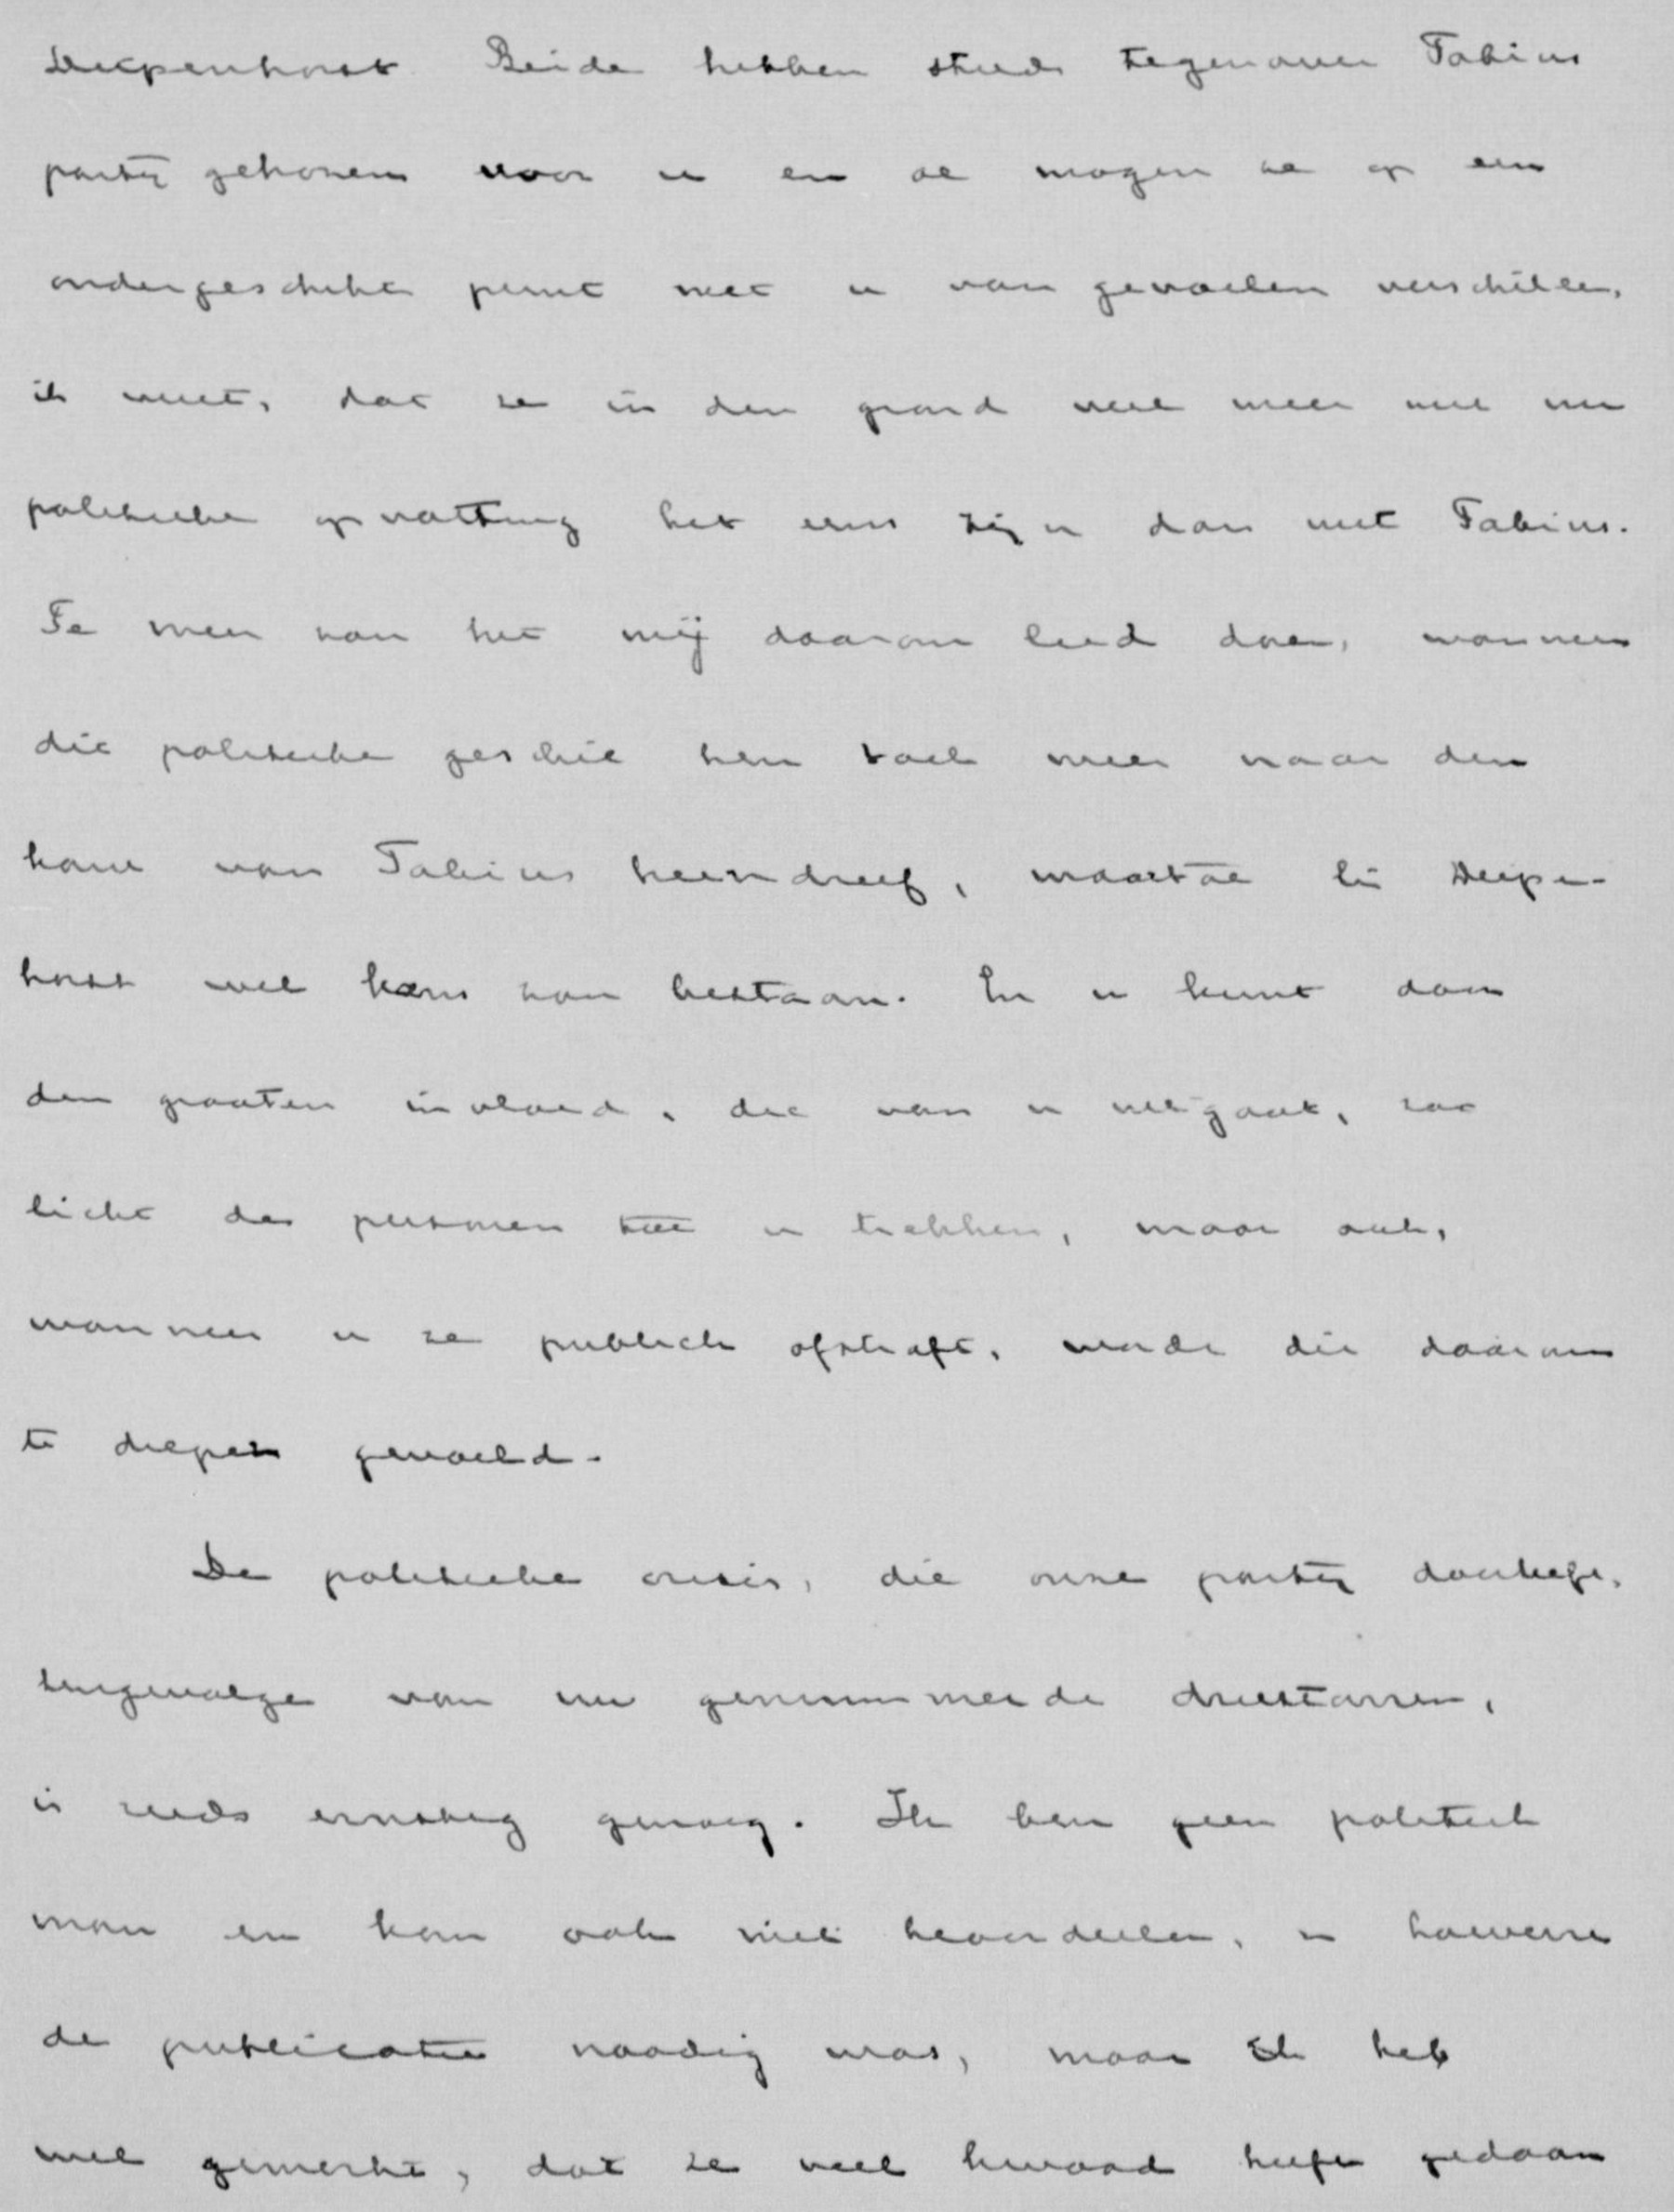 Diepenhorst. Beide hebben steeds tegenover Fabius
partij gekozen voor u en al mogen ze op een
ondergeschikt punt met u van gevoelen verschillen,
ik weet, dat ze in den grond veel meer met uw
politieke opvatting het eens zijn dan met Fabius.
Te meer zou het mij daarom leed doen, wanneer
die politieke geschie hen toch meer naar den
kant van Fabius heendreef, waartoe bij Diepen-
horst wel kans zou bestaan. En u kunt door
den grooten invloed, die van u uitgaat, zoo
licht die personen tot u trekken, maar ook,
wanneer u ze publiek afstraft, wordt dit daarom
te dieper gevoeld.
De politieke crisis, die onze partij doorleeft,
tengevolge van uw genummerde driestarren,
is reeds ernstig genoeg. Ik ben geen politiek
man en kan ook niet beoordeelen, in hoeverre
de publicatie noodig was, maar ik heb
wel gemerkt, dat ze veel kwaad heeft gedaan